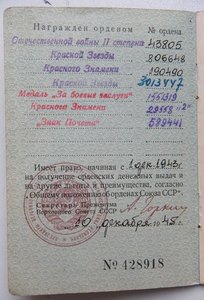 Награжден орденом № ордена
Отечественной войны II степени 43805
Красной Звезды 806648
Красного Знамени 190490
Красной Звезды 3013447
Медаль „За боевые заслуги"
Красного Знамени "2"
„Знак Почета" 589441
Имеет право, начиная с 1 дек. 1943 г.
на получение орденских денежных выдач и
на другие льготы и преимущества, согласно
„Общему положению об орденах Союза ССР".
Секретарь Президиума
Верховного Совета СССР А. Горкин
30 декабря 1945 г.
№ 428918